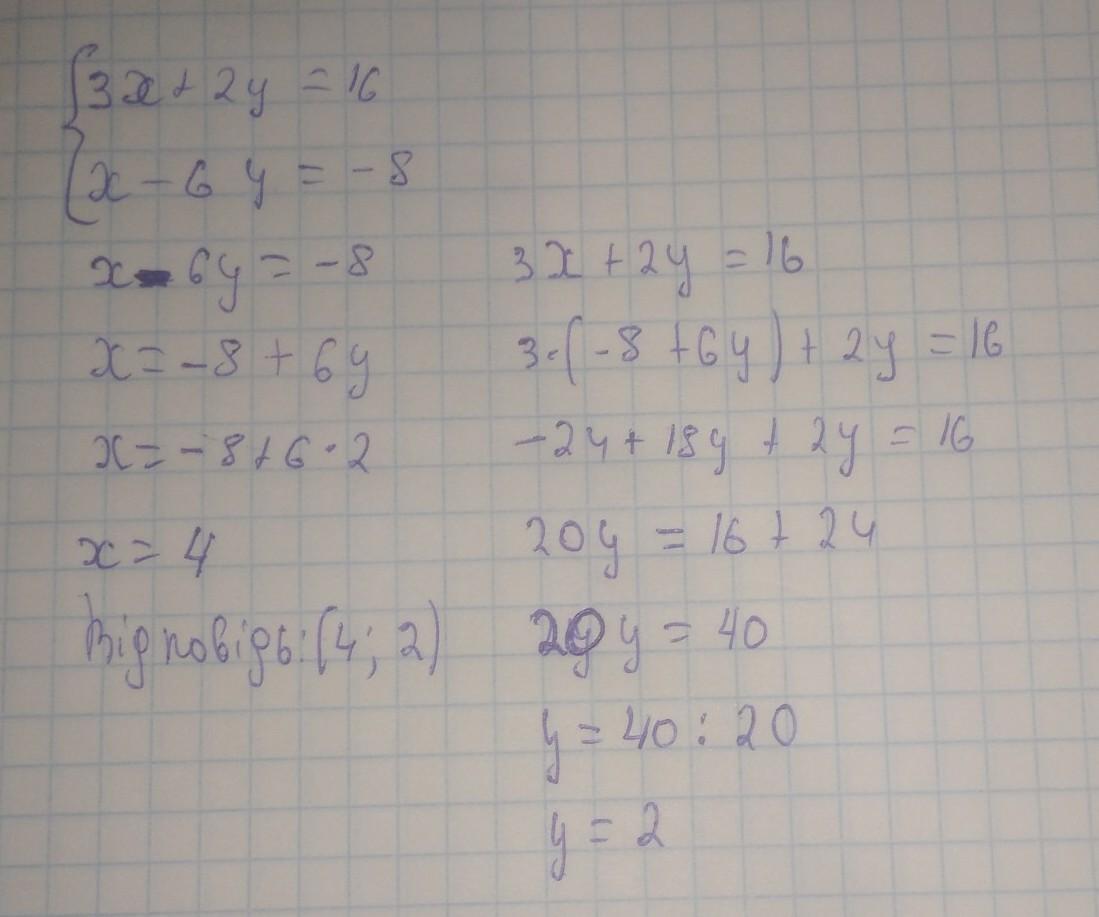 3x + 2y = 16
x - 6y = -8
x - 6y = -8
x = -8 + 6y
x = -8 + 6 · 2
x = 4
Відповідь: (4; 2)
3x + 2y = 16
3·(-8 + 6y) + 2y = 16
-24 + 18y + 2y = 16
20y = 16 + 24
20y = 40
y = 40 : 20
y = 2